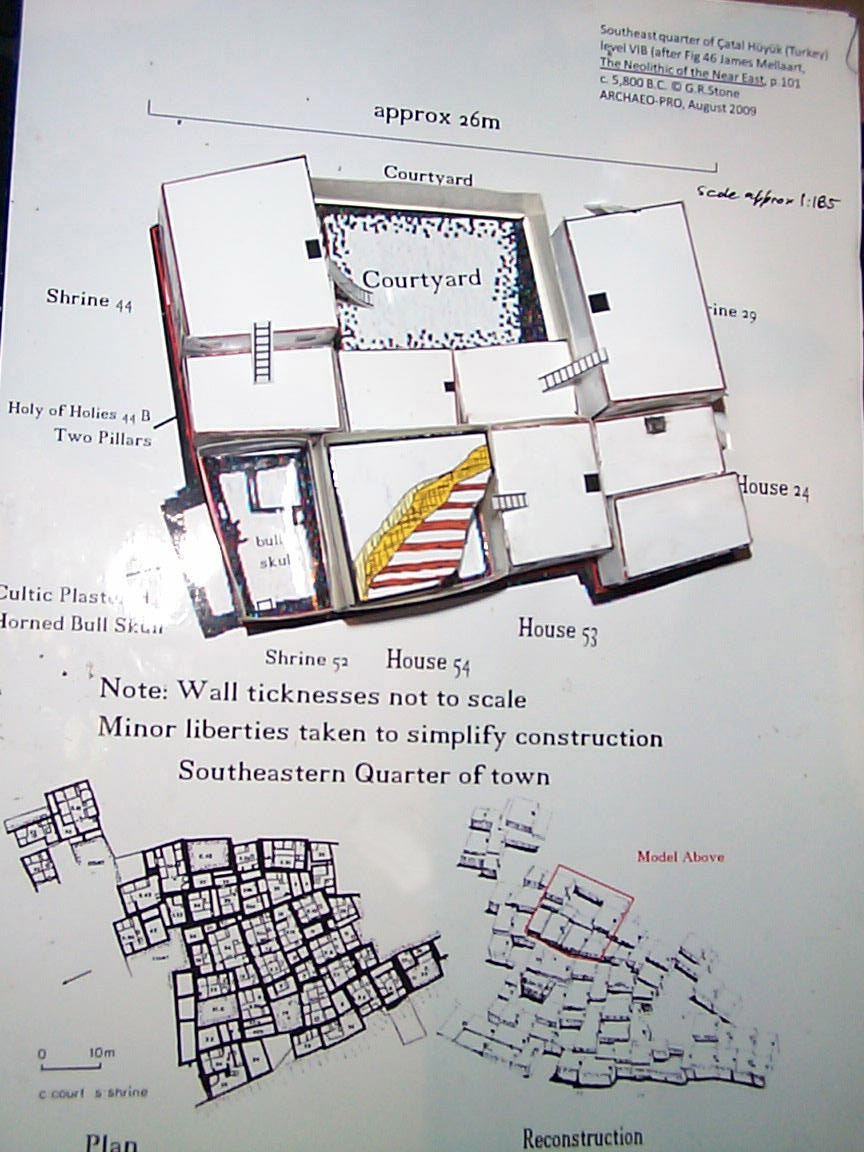 Southeast quarter of Çatal Hüyük (Turkey)
level VIB (after Fig 46 James Mellaart,
The Neolithic of the Near East, p.101
c. 5,800 B.C. © G.R.Stone
ARCHAEO-PRO, August 2009
approx 26m
Scale approx 1:185
Courtyard
Courtyard
Shrine 44
ine 29
Holy of Holies 44 B
Two Pillars
House 24
bull
skul
Cultic Plast
Horned Bull Skull
House 53
Shrine 52
House 54
Note: Wall ticknesses not to scale
Minor liberties taken to simplify construction
Southeastern Quarter of town
Model Above
0 10m
c court s shrine
Plan
Reconstruction